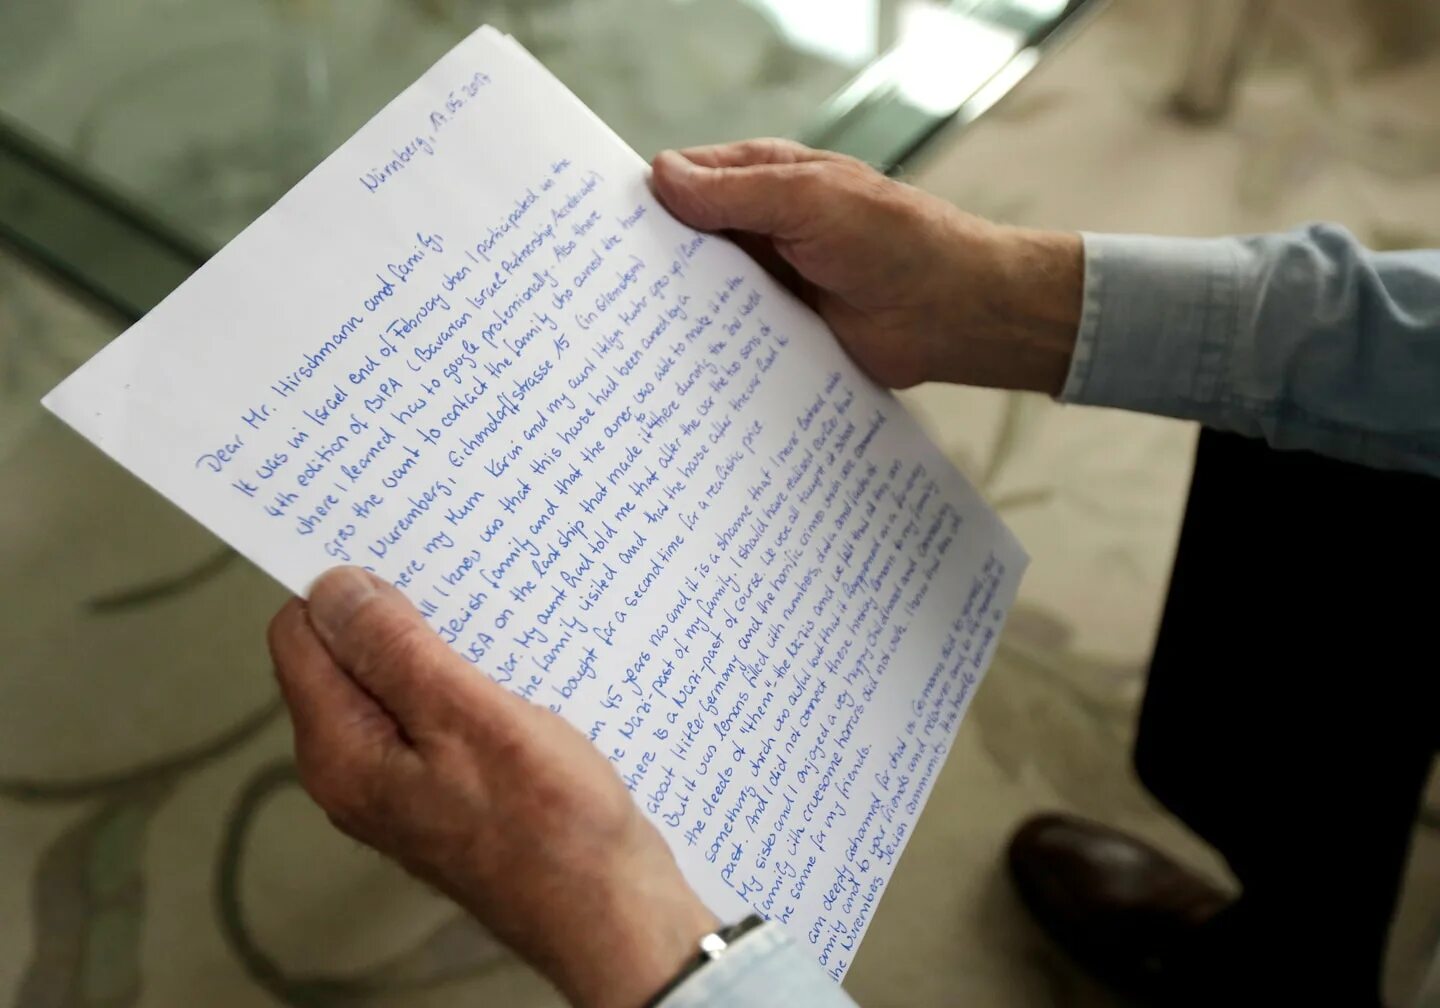 Nürnberg, 17.05.2017
Dear Mr. Hirschmann and family,
It was in Israel end of February when I participated in the
4th edition of BIPA (Bavarian Israel Partnership Accelerator)
where I learned how to google professionally. Also there
grew the want to contact the family who owned the house
Nuremberg, Eichendorffstrasse 15 (in Erlenstegen)
here my Mum Karin and my aunt Helga Huhn grew up /
All I knew was that this house had been owned by a
Jewish family and that the owner was able to make it to the
USA on the last ship that made it there during the 2nd World
War. My aunt had told me that after the war the two sons of
the family visited and that the house after the war had to
be bought for a second time for a realistic price
45 years now and it is a shame that I never bothered with
the Nazi-past of my family. I should have realised earlier that
there is a Nazi-past of course. We were all taught at school
about Hitler Germany and the horrific crimes which were committed
But it was lessons filled with numbers, data and facts of
the deeds of "them" - the Nazis and we felt that all this was
something which was awful but that it happened in a far away
past. And I did not connect these history lessons to my family
My sister and I enjoyed a very happy childhood and connecting
family with gruesome horrors did not work. I know that this is
he same for my friends.
am deeply ashamed for what us Germans did to you, your
amily and to your friends and relatives and to all members of
the Nuremberg Jewish community.